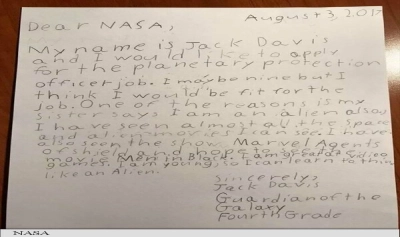 August 3, 2017
Dear NASA,
My name is Jack Davis
and I would like to apply
for the planetary protection
officer job. I may be nine but I
think I would be fit for the
job. One of the reasons is my
sister says I am an alien also,
I have seen almost all the space
and alien movies I can see. I have
also seen the show Marvel Agents
of Shield and hope to see the
movie Men in Black. I am great at video
games. I am young, so I can learn to think
like an Alien.
Sincerely,
Jack Davis
Guardian of the
Galaxy
Fourth Grade
NASA